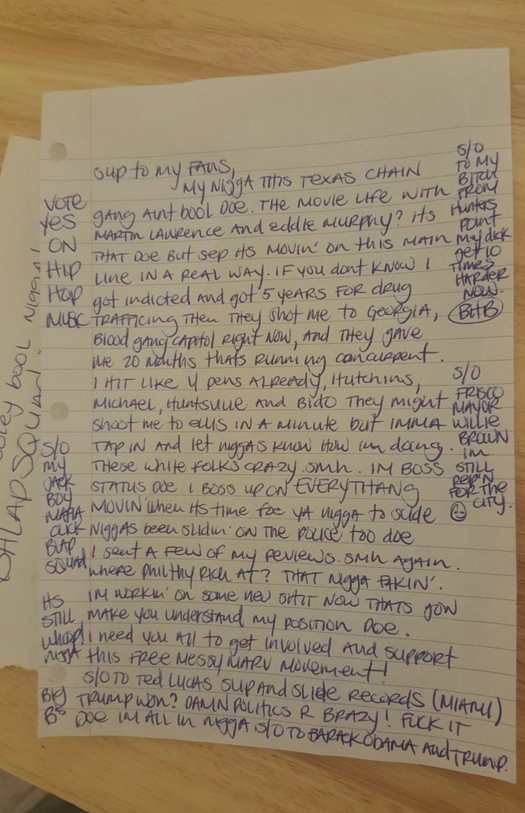 Sup to my fans,
My nigga this Texas chain
gang aint bool doe. The movie Life with
Martin Lawrence and Eddie Murphy? Its
that doe but sep its movin' on this main
line in a real way. If you dont know I
got indicted and got 5 years for drug
trafficing then they shot me to Georgia,
blood gang capitol right now, and they gave
me 20 months thats running concurrent.
I hit like 4 pens already, Hutchins,
Michael, Huntsville and Bido they might
shoot me to Ellis in a minute but imma
tap in and let niggas know how im doing.
These white folks crazy. smh. Im boss
status doe I boss up on EVERYTHANG
movin' when its time foe ya nigga to slide
niggas been slidin' on the police too doe
I sent a few of my reviews. smh again.
Where Philthy Rich at? That nigga fakin'.
Im workin' on some new shit now thats gon
make you understand my position doe.
I need you all to get involved and support
this Free Messy Marv movement!
S/O to Ted Lucas Slip and Slide Records (Miami)
Trump won? Damn politics r brazy! Fuck it
doe im all in nigga s/o to Barack Obama and Trump.
Vote
Yes
on
Hip
Hop
Music
S/O
my
Jack
Boy
Mafia
Click
Blap
Squad
Its
still
whoop
nigga
Big
B's
S/O
to my
bitch
from
Hunters
Point
my dick
get 10
times
harder
now.
BHB
S/O
Frisco
Mayor
Willie
Brown
im
still
rep'n
for the
city.
bool nigga!
BHLAPSQUAD!